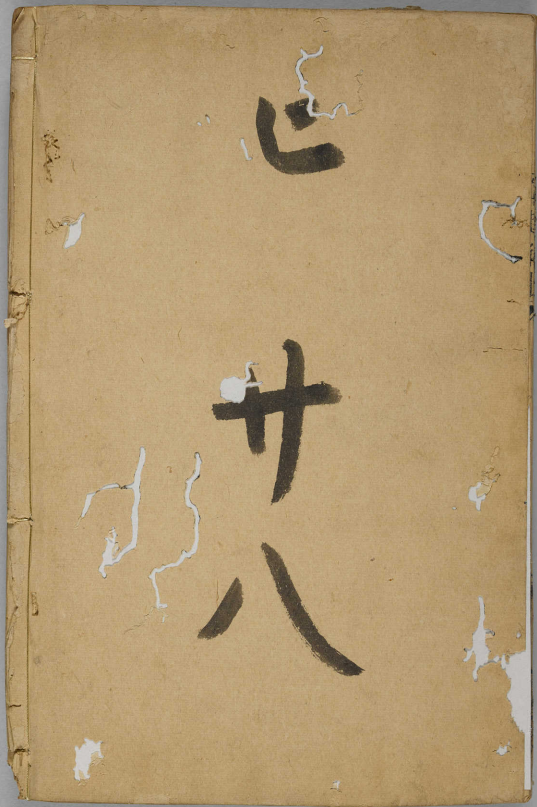 ヒ
廿八